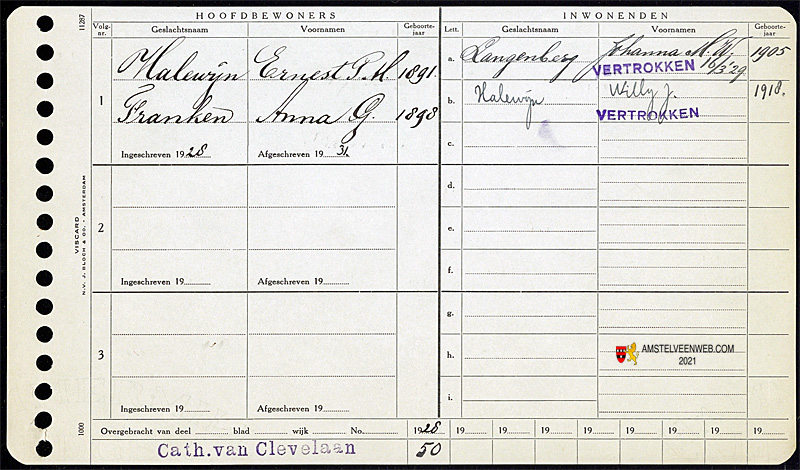 HOOFDBEWONERS
INWONENDEN
Volg-nr. Geslachtsnaam Voornamen Geboorte-jaar
Lett. Geslachtsnaam Voornamen Geboorte-jaar
11287
1
Halewijn Ernest P. H. 1891.
Franken Anna G. 1898
Ingeschreven 1928 Afgeschreven 1931
a. Langenberg Johanna M. W. 1905
VERTROKKEN 16/3'29.
b. Halewijn Willy J. 1918.
VERTROKKEN
c.
2
Ingeschreven 19 Afgeschreven 19
d.
e.
f.
3
Ingeschreven 19 Afgeschreven 19
g.
h.
i.
AMSTELVEENWEB.COM
2021
VISCARD
N.V. J. BLOCH & CO. - AMSTERDAM
1000
Overgebracht van deel blad wijk No. 1928 19 19 19 19 19 19 19 19
Cath. van Clevelaan 50